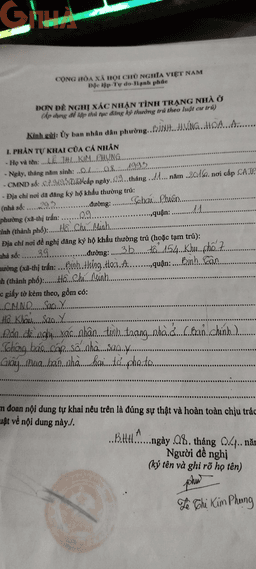 GNHÀ
CỘNG HÒA XÃ HỘI CHỦ NGHĨA VIỆT NAM
Độc lập-Tự do-Hạnh phúc
ĐƠN ĐỀ NGHỊ XÁC NHẬN TÌNH TRẠNG NHÀ Ở
(Áp dụng để lập thủ tục đăng ký thường trú theo luật cư trú)
Kính gửi: Ủy ban nhân dân phường...BÌNH HƯNG HÒA A
I. PHẦN TỰ KHAI CỦA CÁ NHÂN
- Họ và tên: LÊ THỊ KIM PHỤNG
- Ngày, tháng năm sinh: 1995
- CMND số: cấp ngày 09 tháng 11 năm 2016 nơi cấp CA
- Địa chỉ nơi đã đăng ký hộ khẩu thường trú:
(nhà số: đường: Thái Phiên
phường (xã-thị trấn: 09 ,quận: 11
tỉnh (thành phố): Hồ Chí Minh
Địa chỉ nơi đề nghị đăng ký hộ khẩu thường trú (hoặc tạm trú):
nhà số: 39 đường: 3b tổ 154 Khu phố 7
ường (xã-thị trấn: Bình Hưng Hòa A ,quận: Bình Tân
h (thành phố): Hồ Chí Minh
c giấy tờ kèm theo, gồm có:
CMND Sao Y
Hộ Khẩu Sao Y
Đơn đề nghị xác nhận tình trạng nhà ở (Bản chính)
Thông báo cấp số nhà sao y
Giấy mua bán nhà photo
m đoan nội dung tự khai nêu trên là đúng sự thật và hoàn toàn chịu trác
uật về nội dung này./.
BHH A ngày 08 tháng 04 nă
Người đề nghị
(ký tên và ghi rõ họ tên)
Lê Thị Kim Phụng